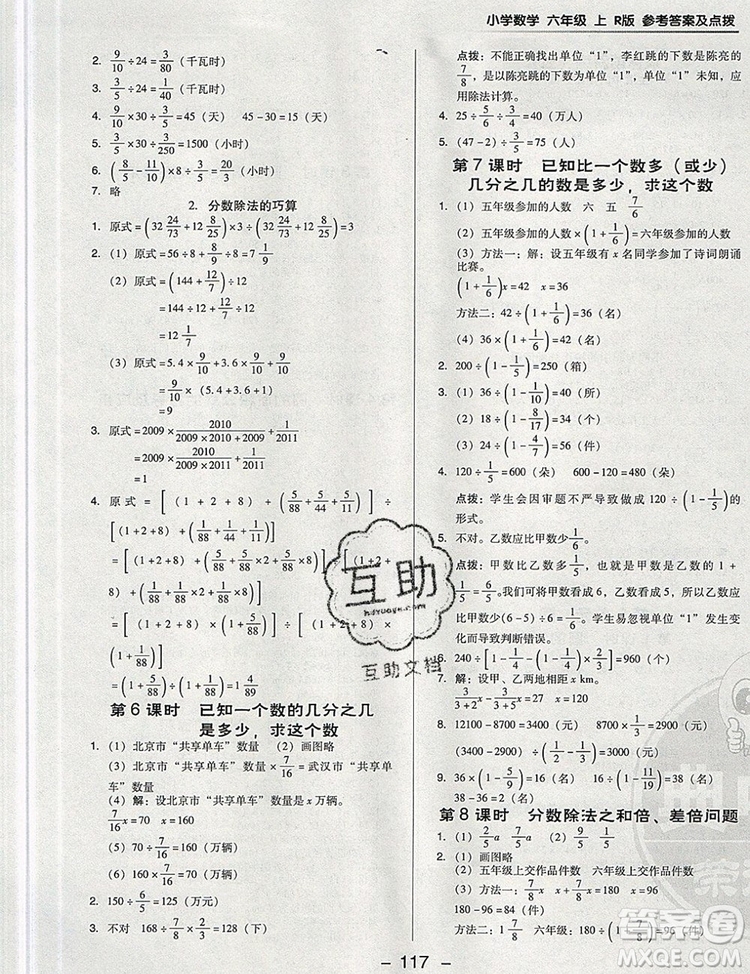 小学数学 六年级 上 R版 参考答案及点拨
2. 9/10÷24=3/80（千瓦时）
3. 3/5÷24=1/40（千瓦时）
4. 9/10×30÷3/5=45（天） 45-30=15（天）
5. 3/5×30÷3/250=1500（小时）
6. (8/5-11/10)×8÷3/5
7. 略
2. 分数除法的巧算
1. 原式=(32 24/73+12 8/25)×3÷(32 24/73+12 8/25)=3
2. （1）原式=56÷8+8/9÷8=7 1/9
（2）原式=(144+12/7)÷12
=144÷12+12/7÷12
=12 1/7
（3）原式=5.4×9/10+3.6×9/10+9/10
=9/10×（5.4+3.6+1）
=9
3. 原式=2009×2010/(2009×2010+2009)+1/2011
=2010/2011+1/2011
=1
4. 原式=[（1+2+8）+(5/88+5/44+5/11)]÷
[（1+2+8）+(1/88+1/44+1/11)]
=[（1+2+8）+(5/88+5/88×2+5/88×8)]÷[（1+2+
8）+(1/88+1/88×2+1/88×8)]
=[（1+2+8）×(1+5/88)]÷[（1+2+8）×
(1+1/88)]
=(1+5/88)÷(1+1/88)=1 4/89
第6课时 已知一个数的几分之几
是多少，求这个数
1. （1）北京市“共享单车”数量 （2）画图略
（3）北京市“共享单车”数量×7/16=武汉市“共享单
车”数量
（4）解：设北京市“共享单车”数量是x万辆。
7/16x=70 x=160
（5）70÷7/16=160（万辆）
（6）160×7/16=70（万辆）
2. 150÷6/5=125（万元）
3. 不对 168÷7/8=192（下） 147÷7/8×2/3=128（下）
点拨：不能正确确定单位“1”，李红跳的下数是陈亮的
7/8，是以陈亮跳的下数为单位“1”，单位“1”未知，应
用除法计算。
4. 25÷5/6÷3/4=40（万人）
5. （47-2）÷3/5=75（人）
第7课时 已知比一个数多（或少）
几分之几的数是多少，求这个数
1. （1）五年级参加的人数 六 五 7/6
（2）五年级参加的人数×(1+1/6)=六年级参加的人数
（3）方法一：解：设五年级有x名同学参加了诗词朗诵
比赛。
(1+1/6)x=42 x=36
方法二：42÷(1+1/6)=36（名）
（4）36×(1+1/6)=42（名）
2. 200÷(1-1/5)=250（箱）
3. （1）36÷(1-1/10)=40（所）
（2）18÷(1-8/17)=34（首）
（3）24÷(1-4/7)=56（件）
4. 120÷1/5=600（朵） 600-120=480（朵）
点拨：学生会因审题不严导致做成120÷(1-1/5)的
形式。
5. 不对。乙数应比甲数少1/6。
点拨：甲数比乙数多1/5，也就是甲数是乙数的
1+1/5=6/5。我们可以将甲数看成6，乙数看成5，则乙
数比甲数少（6-5）÷6=1/6。学生易忽视单位“1”发生
变化而导致判断错误。
6. 240÷[1-1/4-1/3×(1+1/2)]=960（名）
7. 解：设甲、乙两地相距x km。
3/(3+2)x-1/2x=35 x=350
8. 12100-8700=3400（元） 8700×1/3=2900（元）
（3400-2900）÷(1/2-1/3)=3000（元）
9. 36×(1-5/9)=16（名） 16÷(1-11/19)=38（名）
38-36=2（名）
第8课时 分数除法之和倍、差倍问题
1. （1）2/5a 7/5a （2）9/5 1/5
2. （1）画图略
（2）五年级上交作品件数 六年级上交作品件数
互助
hdzuoye.com
互助文档
答案圈
MXQE.COM
- 117 -